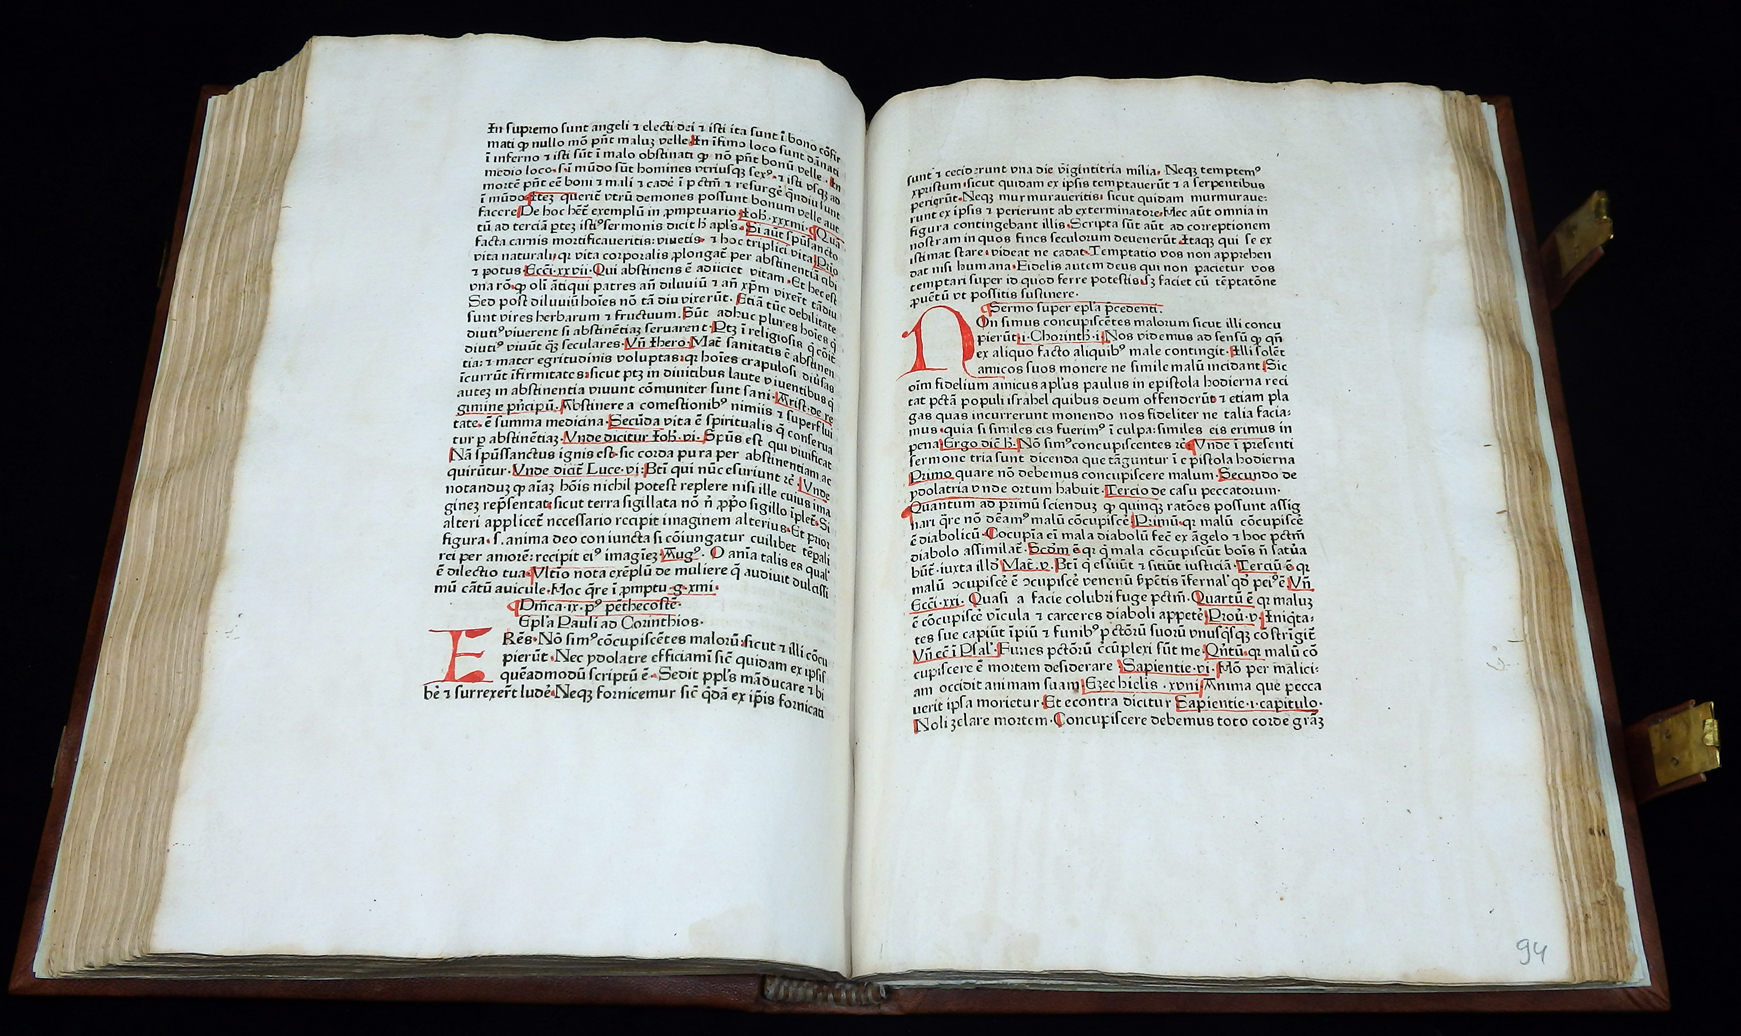 In supremo sunt angeli ⁊ electi dei ⁊ isti ita sunt ī bono cōfir
mati ꝙ nullo mō pn̄t maluꝫ velle. In īfimo loco sunt dānati
ī inferno ⁊ isti sūt ī malo obstinati ꝙ nō pn̄t bonū velle. In
medio loco.s.ī mūdo sūt homines vtriusqꝫ sexꝰ. ⁊ isti vsqꝫ ad
mortē pn̄t eē boni ⁊ mali ⁊ cadē ī pctm̄ ⁊ resurgē qn̄diu sunt
ī mūdo. Iteꝫ querit vtrū demones possunt bonum velle aut
facere. De hoc hēt exemplū in ꝓmptuario
tū ad terciā ptez istiꝰ sermonis dicit h̄ apls. Si aūt spūsancto
facta carnis mortificaueritis: viuetis. ⁊ hoc triplici vita. Prīo
vita naturali. qꝛ vita corporalis ꝓlongat per abstinentiā cibi
⁊ potus. Ecci.xxvii. Qui abstinens ē adiiciet vitam. Et hec est
vna rō ꝙ oli ātiqui patres an̄ diluuiū ⁊ an̄ xp̄m vixerūt tādiu
Sed post diluuiū hoīes nō tā diu vixerūt. Etiā tūc debilitate
sunt vires herbarum ⁊ fructuum. Sūt adhuc plures hoīes q
diutiꝰ viuerent si abstinētiaꝫ seruarent. Ptꝫ ī religiosis q cōit
diutiꝰ viuūt qꝫ seculares. Vn̄ Ihero. Mat sanitatis ē abstinen
tia: ⁊ mater egritudinis voluptas: qꝛ hoīes crapulosi diuſas
īcurrūt īfirmitates: sicut ptꝫ in diuitibus laute viuentibus q
autez in abstinentia viuunt cōmuniter sunt sani. Arist. de re
gimine prīcipū. Abstinere a comestionibꝰ nimiis ⁊ superflui
tate. ē summa medicina. Secūda vita ē spiritualis q conserua
tur p abstinētiaꝫ. Vnde dicitur Joh.vi. Spūs est qui viuificat
Nā spūssanctus ignis est. sic corda pura per abstinentiam ac
quirūtur. Vnde dicit Luce.vi. Bti qui nūc esuriunt ⁊c̄. Vnde
notanduꝫ ꝙ aīaꝫ hoīs nichil potest replere nisi ille cuius ima
ginez rep̄sentat. sicut terra sigillata nō n̄ ꝓpo sigillo īplet. Si
alteri applicet necessario recipit imaginem alterius. Et prior
figura. s. anima deo coniuncta si cōiungatur cuilibet tēpali
rei per amorē: recipit eiꝰ imagīez. Augꝰ. O anīa talis es qual
ē dilectio tua. Vltīo nota exēplū de muliere q audiuit dulcissi
mū cātū auicule. Hoc qre ī ꝓmptu.
Dn̄ica.ix.pꝰ pēthecostē.
Epl̄a Pauli ad Corinthios.
FRēs. Nō simꝰ cōcupiscētes malorū: sicut ⁊ illi cōcu
pierūt. Nec ydolatre efficiamī: sic̄ quidam ex ipsis
quēadmodū scriptū ē. Sedit ppl̄s māducare ⁊ bi
bē ⁊ surrexerūt ludē. Neqꝫ fornicemur sic̄ qdā ex ip̄is fornicati
sunt ⁊ ceciderunt vna die vigintitria milia. Neqꝫ temptemꝰ
xpistum. sicut quidam ex ipsis temptauerūt ⁊ a serpentibus
perierūt. Neqꝫ murmuraueritis: sicut quidam murmuraue:
runt ex ipsis ⁊ perierunt ab exterminatore. Hec aūt omnia in
figura contingebant illis. Scripta sūt aūt ad correptionem
nostram in quos fines seculorum deuenerūt. Itaqꝫ qui se ex
istimat stare. videat ne cadat. Temptatio vos non apprehen
dat nisi humana. Fidelis autem deus qui non pacietur vos
temptari super id quod ferre potestis. Sꝫ faciet cū tēptatōne
ꝓuētū vt possitis sustinere.
Sermo super epl̄a p̄cedenti.
NOn simus concupiscētes malorum sicut illi concu
pierūt. i. Chorinth. i. Nos videmus ad sensū ꝙ qn̄
ex aliquo facto aliquibꝰ male contingit. Illi solēt
amicos suos monere ne simile malū incidant. Sic
oīm fidelium amicus apl̄us paulus in epistola hodierna reci
tat pctā populi israhel quibus deum offenderūt ⁊ etiam pla
gas quas incurrerunt monendo nos fideliter ne talia facia:
mus. quia si similes eis fuerimꝰ ī culpa: similes eis erimus in
pena. Ergo dicit h̄. Nō simꝰ concupiscentes ⁊c̄. Vnde ī presenti
sermone tria sunt dicenda que tāguntur ī epistola hodierna
Primo quare nō debemus concupiscere malum. Secundo de
ydolatria vnde ortum habuit. Tercio de casu peccatorum.
Quantum ad primū sciendū ꝙ quinqꝫ ratōes possunt assig
nari qre nō deamꝰ malū cōcupiscē. Primū. qꝛ malū cōcupiscē
ē diabolicū. Cocupīa ei mala diabolū fec ex āgelo ⁊ hoc pctm̄
diabolo assimilat. Scdm ē. qꝛ q mala cōcupiscūt boīs n̄ satūa
būt. iuxta illd Mat.v. Bti q esuiūt ⁊ sitiūt iusticiā. Terciū ē. qꝛ
malū ↄcupiscē ē ↄcupiscē venenū spētis īfernal
Ecci.xxi. Quasi a facie colubri fuge pctm̄. Quartū ē qꝛ maluꝫ
ē cōcupiscē vīcula ⁊ carceres diaboli appetē. Prou.v. Iniqta:
tes sue capiūt īpiū ⁊ funibꝰ pctōrū suorū vnusqsqꝫ cōstrīgit
Vn̄ ec̄ ī Psal. Funes pctōrū ccūplexi sūt me. Qntū. qꝛ malū cō
cupiscere ē mortem desiderare. Sapientie.vi. Hō per malici:
am occidit animam suam. Ezechielis.xviii. Anima que pecca
uerit ipsa morietur. Et econtra dicitur Sapientie.i.capitulo.
Noli zelare mortem. Concupiscere debemus toto corde graꝫ
94